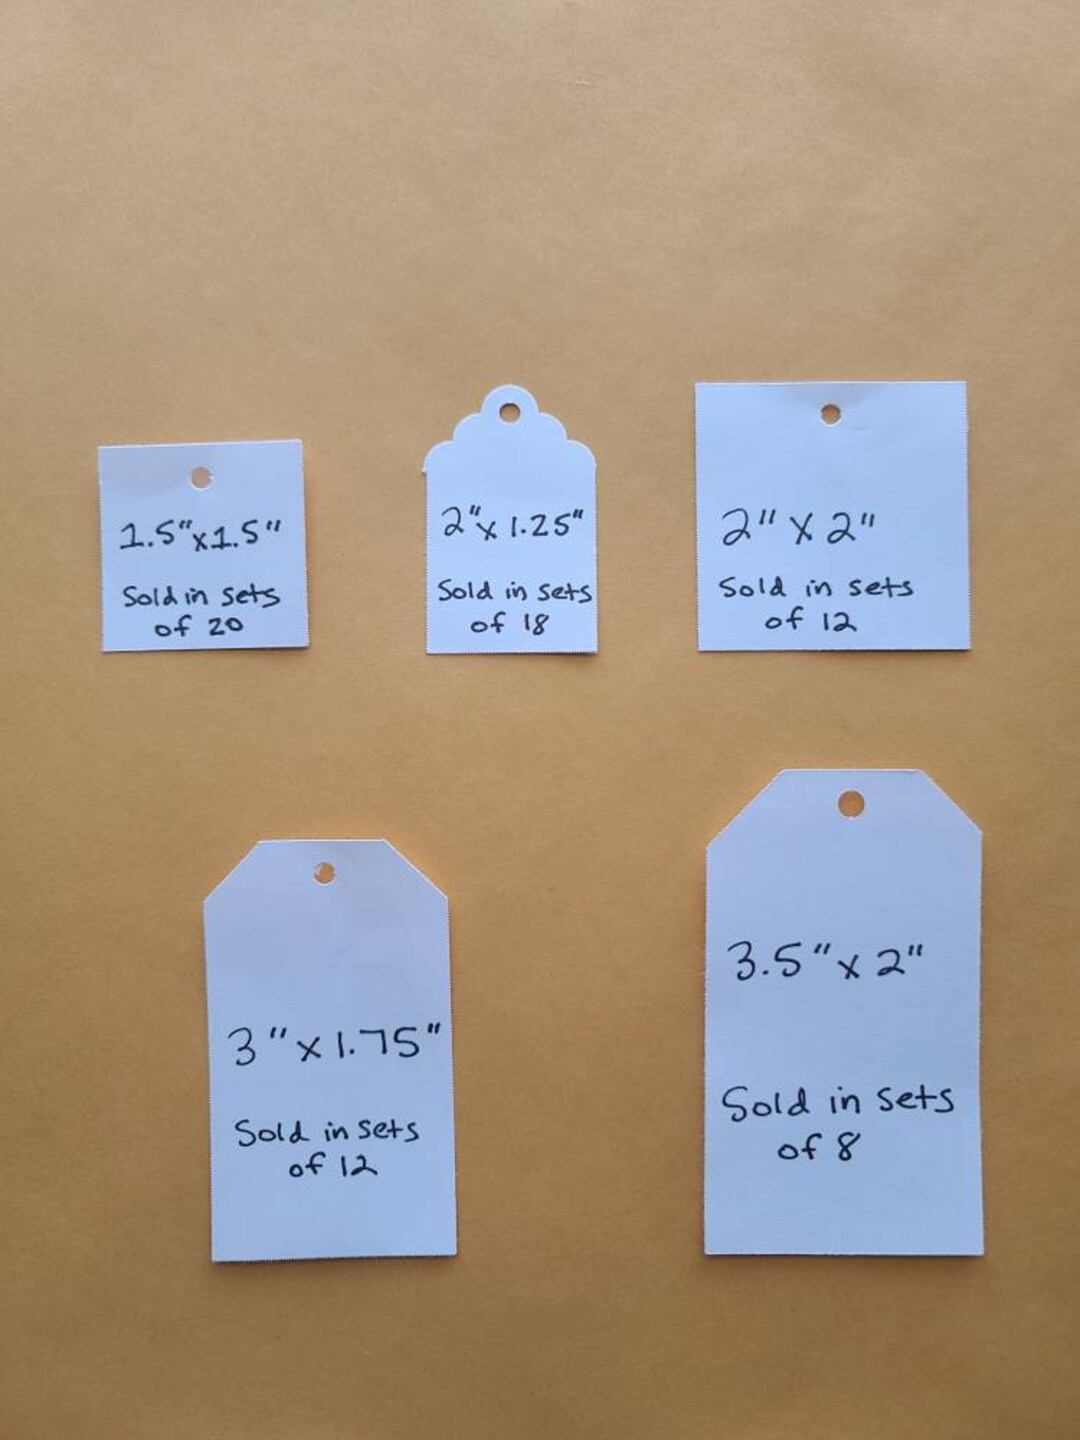 1.5"x1.5"
Sold in sets
of 20
2"x 1.25"
Sold in sets
of 18
2" X 2"
Sold in sets
of 12
3"x 1.75"
Sold in sets
of 12
3.5"x 2"
Sold in sets
of 8